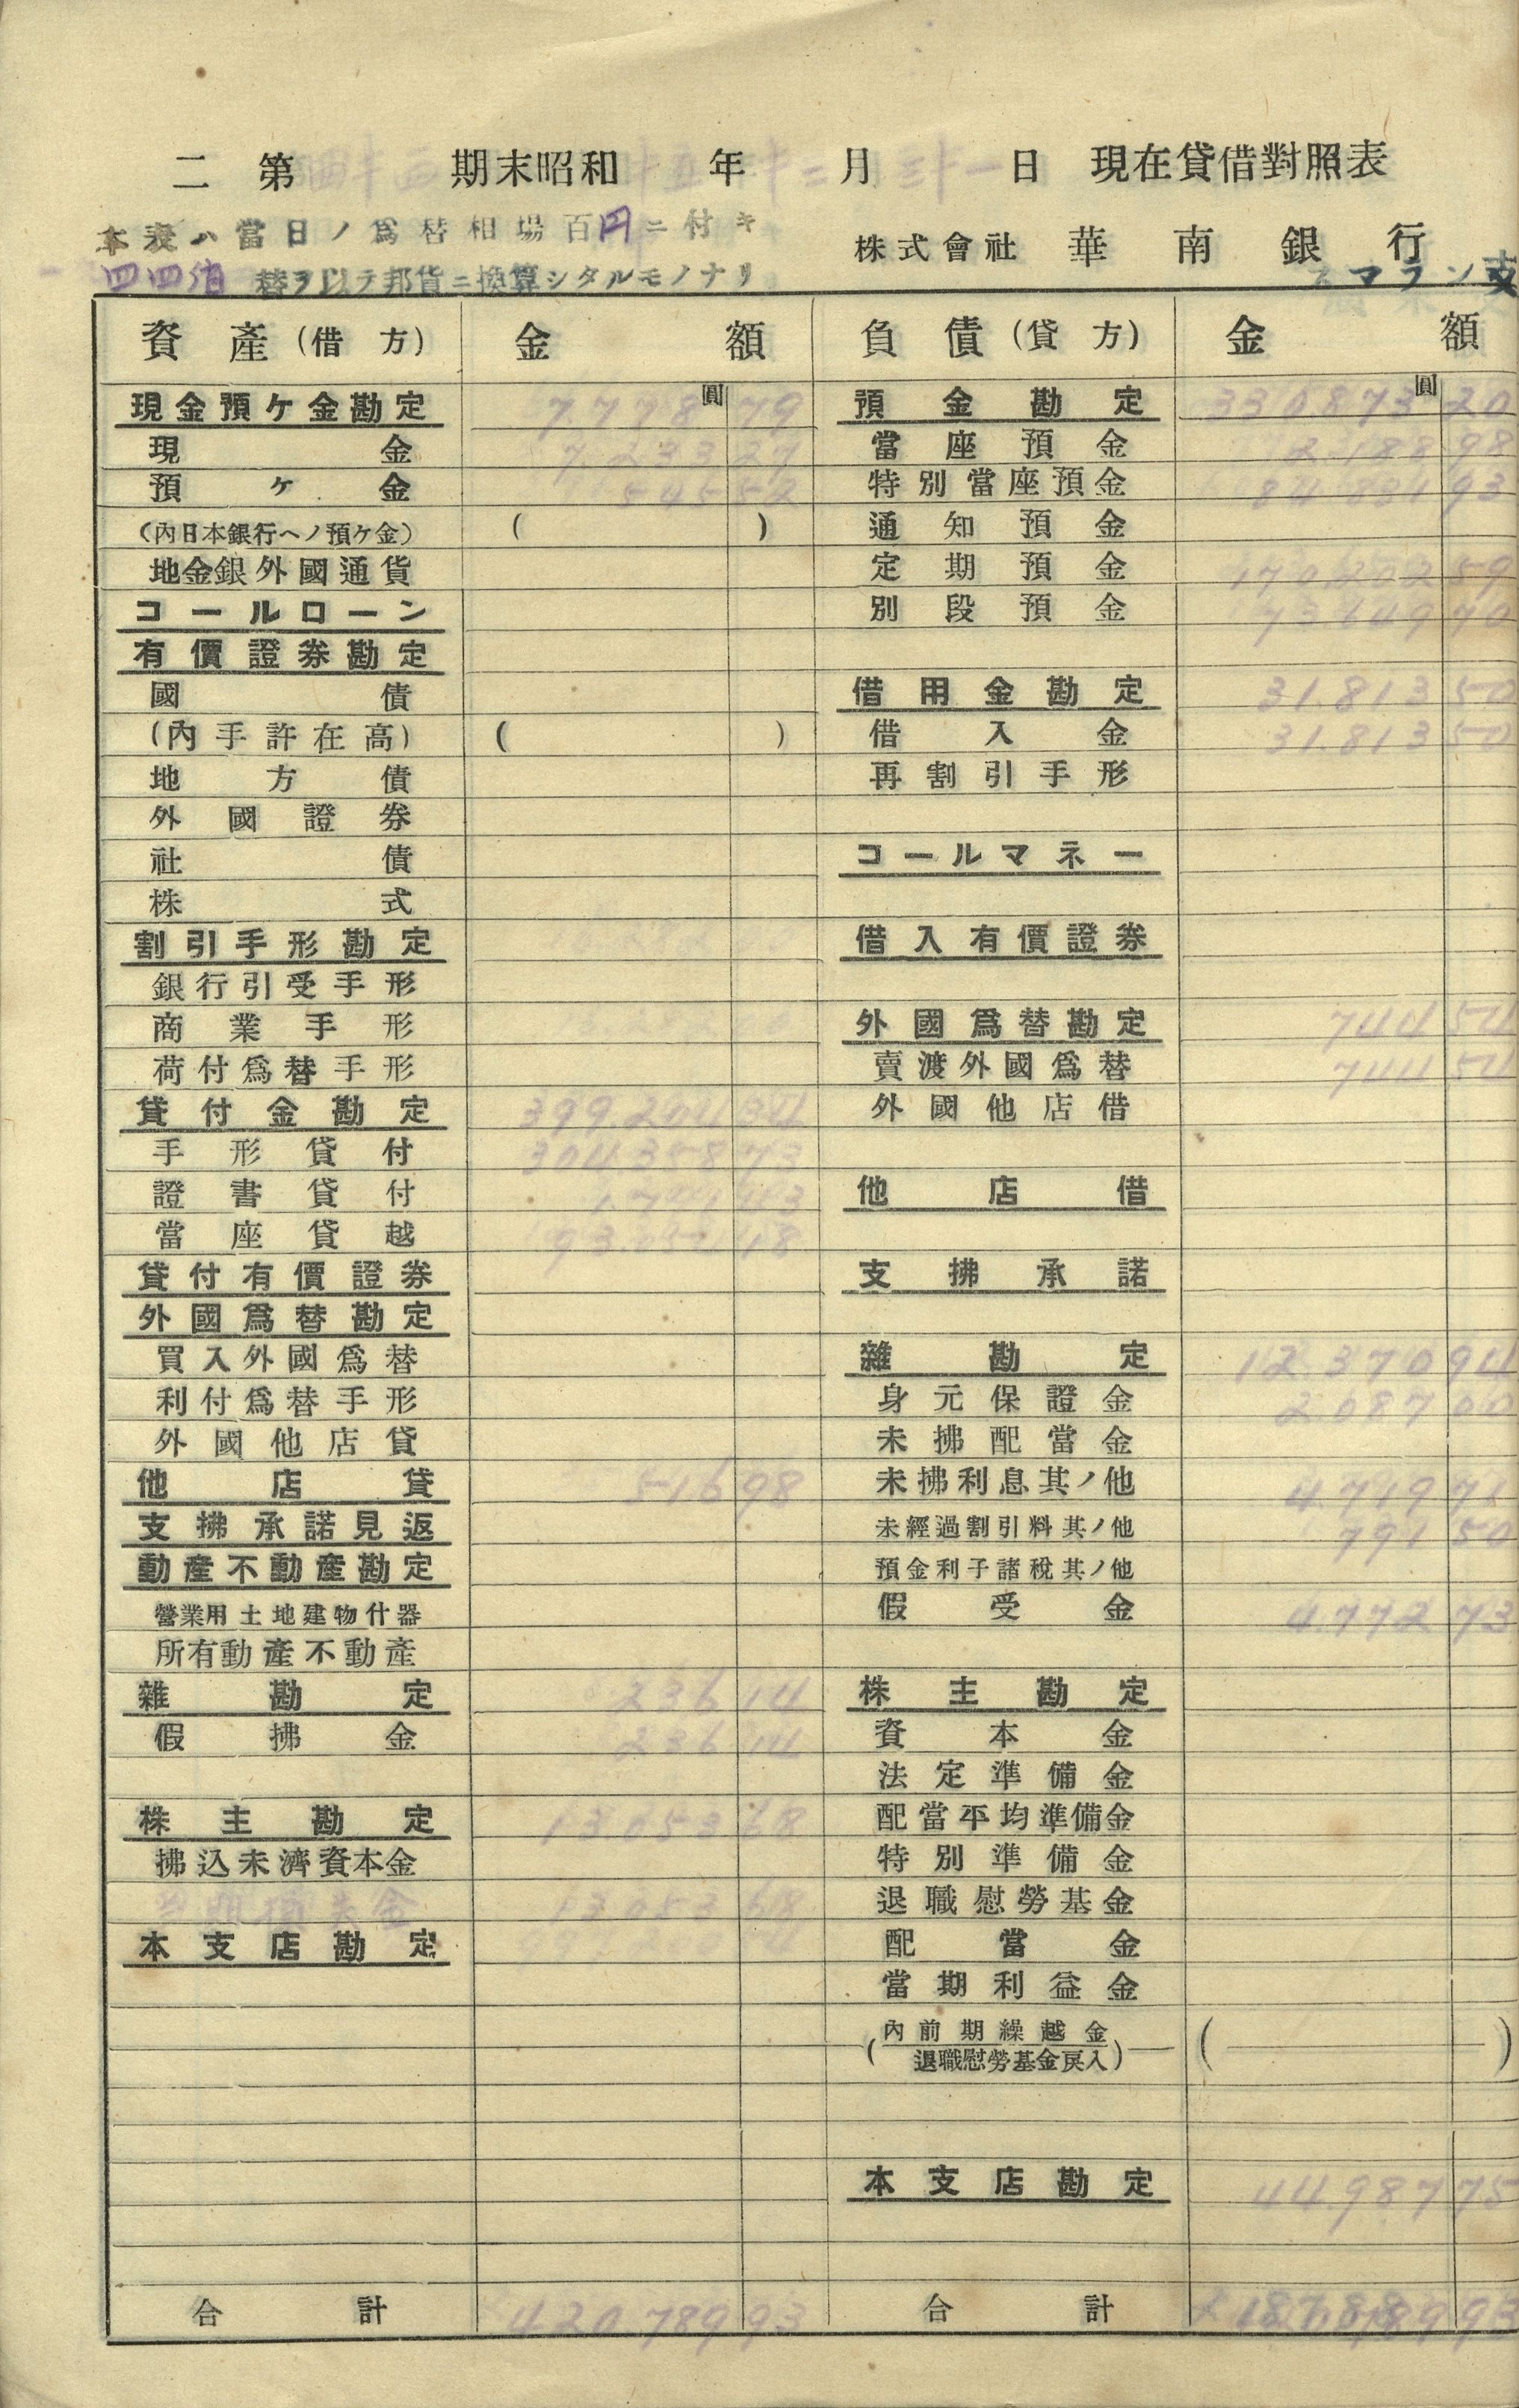 二 第 四十四 期末昭和 十五 年 十二 月 三十一 日 現在貸借對照表
本表ハ當日ノ爲替相場百円ニ付キ
四四
替ヲ以テ邦貨ニ換算シタルモノナリ
株式會社 華南銀行
スマラン支
資產(借方) 金額 負債(貸方) 金額
圓 圓
現金預ケ金勘定 7.778 79 預金勘定 330.873 20
現金 7.233 27 當座預金 2.188 98
預ケ金 545 52 特別當座預金 84.831 93
(內日本銀行ヘノ預ケ金) ( ) 通知預金
地金銀外國通貨 定期預金 170.202 59
コールローン 別段預金 73.649 70
有價證券勘定
國債 借用金勘定 31.813 50
(內手許在高) ( ) 借入金 31.813 50
地方債 再割引手形
外國證券
社債 コールマネー
株式
割引手形勘定 借入有價證券
銀行引受手形
商業手形 外國爲替勘定 744 54
荷付爲替手形 賣渡外國爲替 744 54
貸付金勘定 399.204 34 外國他店借
手形貸付 304.358 73
證書貸付 1.791 43 他店借
當座貸越 93.054 18
貸付有價證券 支拂承諾
外國爲替勘定
買入外國爲替 雜勘定 12.370 94
利付爲替手形 身元保證金 2.087 00
外國他店貸 未拂配當金
他店貸 516 98 未拂利息其ノ他 4.719 71
支拂承諾見返 未經過割引料其ノ他 791 50
動產不動產勘定 預金利子諸稅其ノ他
營業用土地建物什器 假受金 4.772 73
所有動產不動產
雜勘定 236 14 株主勘定
假拂金 236 14 資本金
法定準備金
株主勘定 13.053 68 配當平均準備金
拂込未濟資本金 特別準備金
當期損失金 13.053 68 退職慰勞基金
本支店勘定 配當金
當期利益金
(內前期繰越金 ( )
退職慰勞基金戾入)
本支店勘定 44.987 75
合計 420.789 93 合計 93